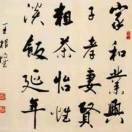 家和業興
子孝妻賢
粗茶怡性
淡飯延年